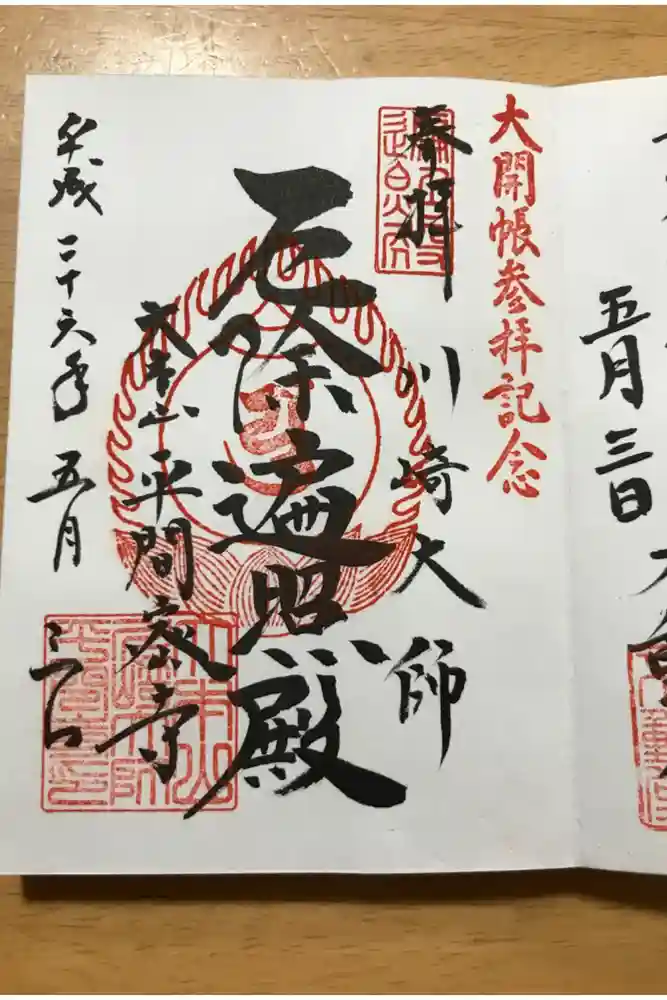 五月三日
大開帳参拝記念
奉拝
川崎大師
厄除遍照殿
大本山平間密寺
平成二十六年五月三日